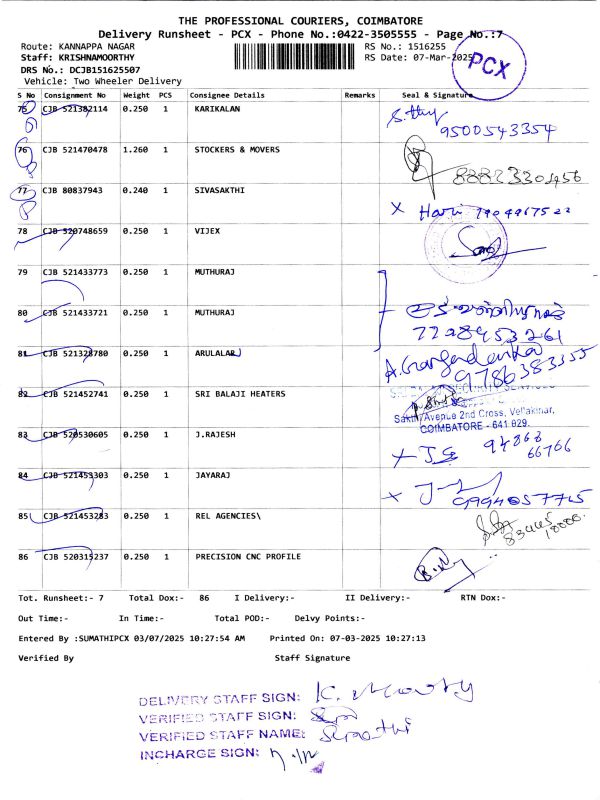 THE PROFESSIONAL COURIERS, COIMBATORE
Delivery Runsheet - PCX - Phone No.:0422-3505555 - Page No.:7
Route: KANNAPPA NAGAR RS No.: 1516255
Staff: KRISHNAMOORTHY RS Date: 07-Mar-2025
PCX
DRS No.: DCJB151625507
Vehicle: Two Wheeler Delivery
S No Consignment No Weight PCS Consignee Details Remarks Seal & Signature
75 CJB 521382114 0.250 1 KARIKALAN
9500543354
76 CJB 521470478 1.260 1 STOCKERS & MOVERS
77 CJB 80837943 0.240 1 SIVASAKTHI
X Hari
78 CJB 520748659 0.250 1 VIJEX
79 CJB 521433773 0.250 1 MUTHURAJ
80 CJB 521433721 0.250 1 MUTHURAJ
81 CJB 521328780 0.250 1 ARULALAR
9786383155
82 CJB 521452741 0.250 1 SRI BALAJI HEATERS
Sakthi Avenue 2nd Cross, Vellakinar,
COIMBATORE - 641 029.
83 CJB 520530605 0.250 1 J.RAJESH
94868
66766
84 CJB 521453303 0.250 1 JAYARAJ
85 CJB 521453283 0.250 1 REL AGENCIES\
86 CJB 520315237 0.250 1 PRECISION CNC PROFILE
Tot. Runsheet:- 7 Total Dox:- 86 I Delivery:- II Delivery:- RTN Dox:-
Out Time:- In Time:- Total POD:- Delvy Points:-
Entered By :SUMATHIPCX 03/07/2025 10:27:54 AM Printed On: 07-03-2025 10:27:13
Verified By Staff Signature
DELIVERY STAFF SIGN: K. Moorty
VERIFIED STAFF SIGN:
VERIFIED STAFF NAME: Sumathi
INCHARGE SIGN: